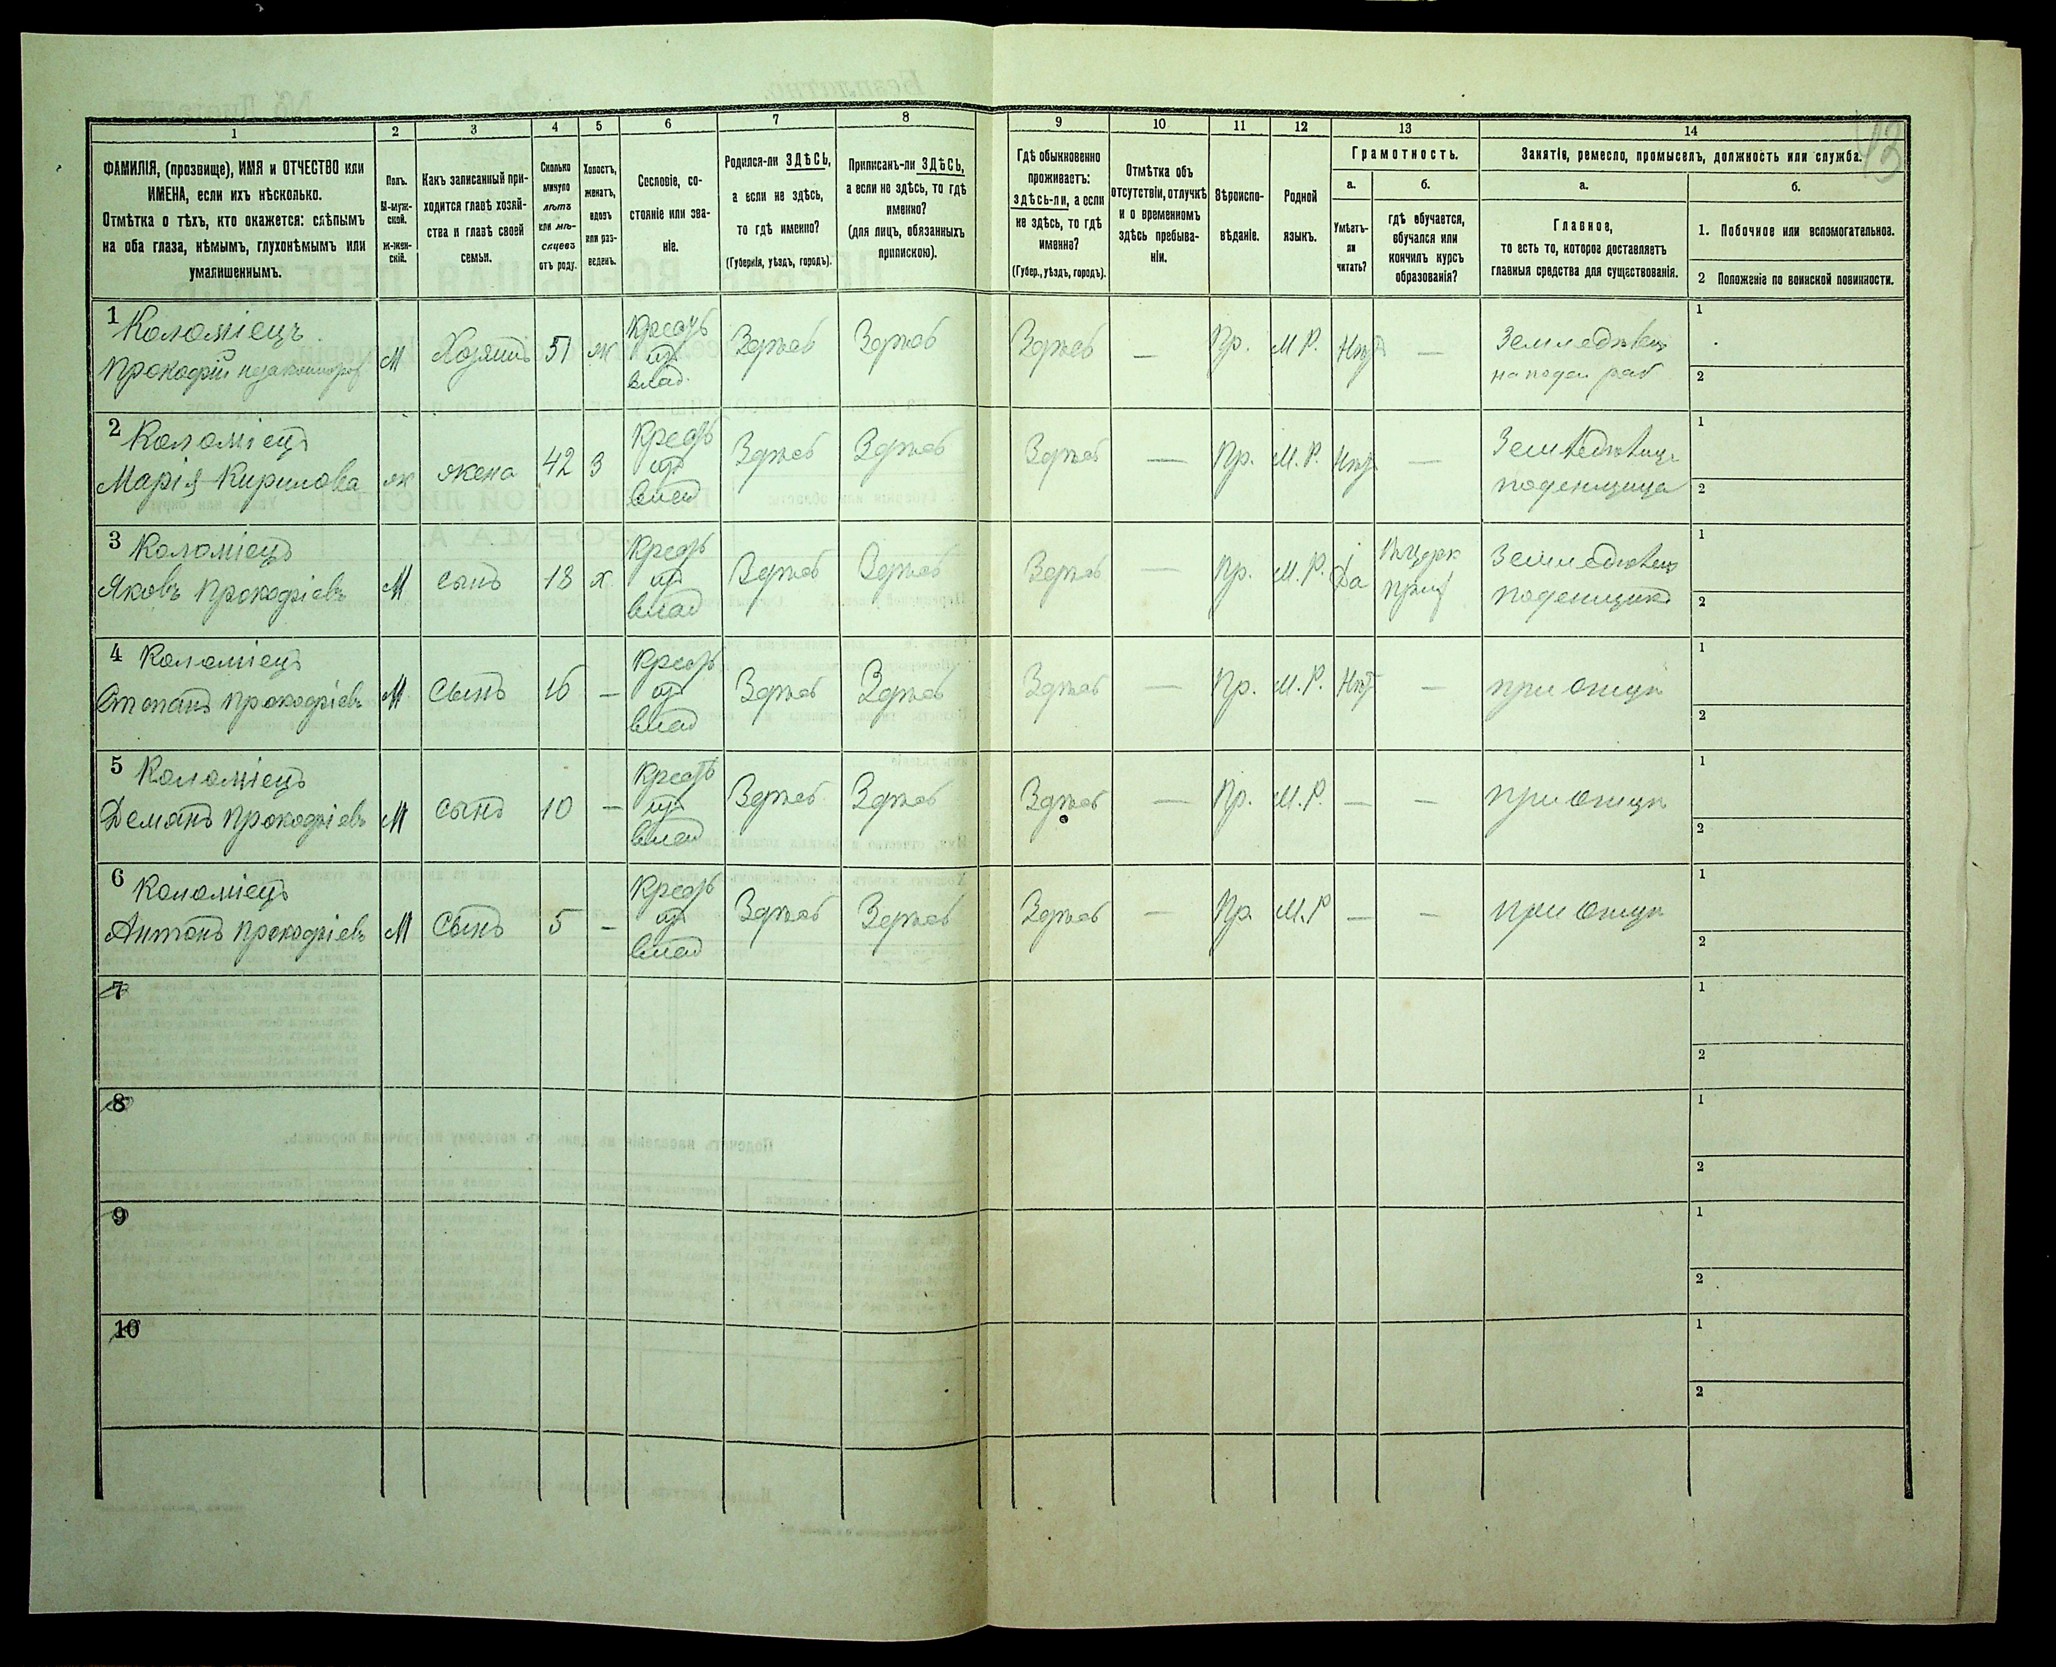 13
1 2 3 4 5 6 7 8 9 10 11 12 13 14
ФАМИЛІЯ, (прозвище), ИМЯ и ОТЧЕСТВО или
ИМЕНА, если ихъ нѣсколько.
Отмѣтка о тѣхъ, кто окажется: слѣпымъ
на оба глаза, нѣмымъ, глухонѣмымъ или
умалишеннымъ.
Полъ.
М-муж-
ской.
Ж-жен-
скій.
Какъ записанный при-
ходится главѣ хозяй-
ства и главѣ своей
семьи.
Сколько
минуло
лѣтъ
или мѣ-
сяцевъ
отъ роду.
Холостъ,
женатъ,
вдовъ
или раз-
веденъ.
Сословіе, со-
стояніе или зва-
ніе.
Родился-ли ЗДѢСЬ,
а если не здѣсь,
то гдѣ именно?
(Губернія, уѣздъ, городъ).
Приписанъ-ли ЗДѢСЬ,
а если не здѣсь, то гдѣ
именно?
(для лицъ, обязанныхъ
припискою).
Гдѣ обыкновенно
проживаетъ:
здѣсь-ли, а если
не здѣсь, то гдѣ
именно?
(Губер., уѣздъ, городъ).
Отмѣтка объ
отсутствіи, отлучкѣ
и о временномъ
здѣсь пребыва-
ніи.
Вѣроиспо-
вѣданіе.
Родной
языкъ.
Грамотность.
а.
Умѣетъ-
ли
читать?
б.
гдѣ обучается,
обучался или
кончилъ курсъ
образованія?
Занятіе, ремесло, промыселъ, должность или служба.
а.
Главное,
то есть то, которое доставляетъ
главныя средства для существованія.
б.
1. Побочное или вспомогательное.
2 Положеніе по воинской повинности.
1 Коломіецъ
Прокофій
М Хозяинъ 51 ж
Крест
влад.
Здѣсь Здѣсь Здѣсь — Пр. М.Р. Нѣт —
Земледѣлецъ
1
2
2 Коломіецъ
Марія Кирилова
ж жена 42 З
Крест
влад
Здѣсь Здѣсь Здѣсь — Пр. М.Р. Нѣт —
поденщица
1
2
3 Коломіецъ
Яковъ Прокофіевъ
М сынъ 18 х
Крест
влад
Здѣсь Здѣсь Здѣсь — Пр. М.Р. Да
Земледѣлецъ
поденщикъ
1
2
4 Коломіецъ
Степанъ Прокофіевъ
М сынъ 16 —
Крест
влад
Здѣсь Здѣсь Здѣсь — Пр. М.Р. Нѣт —
при отцѣ
1
2
5 Коломіецъ
Деманъ Прокофіевъ
М сынъ 10 —
Крест
влад
Здѣсь Здѣсь Здѣсь — Пр. М.Р. — —
при отцѣ
1
2
6 Коломіецъ
Антонъ Прокофіевъ
М Сынъ 5 —
Крест
влад
Здѣсь Здѣсь Здѣсь — Пр. М.Р — —
при отцѣ
1
2
7
1
2
8
1
2
9
1
2
10
1
2